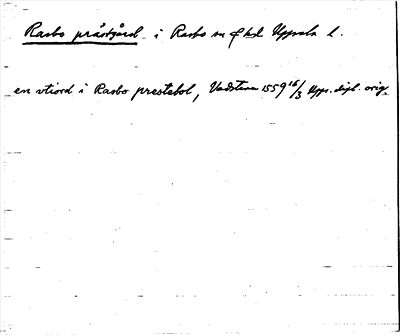 Rasbo prästgård i Rasbo sn o hd Uppsala l.
en vtiord i Rasbo prestebol, Vadstena 1559 16/3 Upps. dipl. orig.